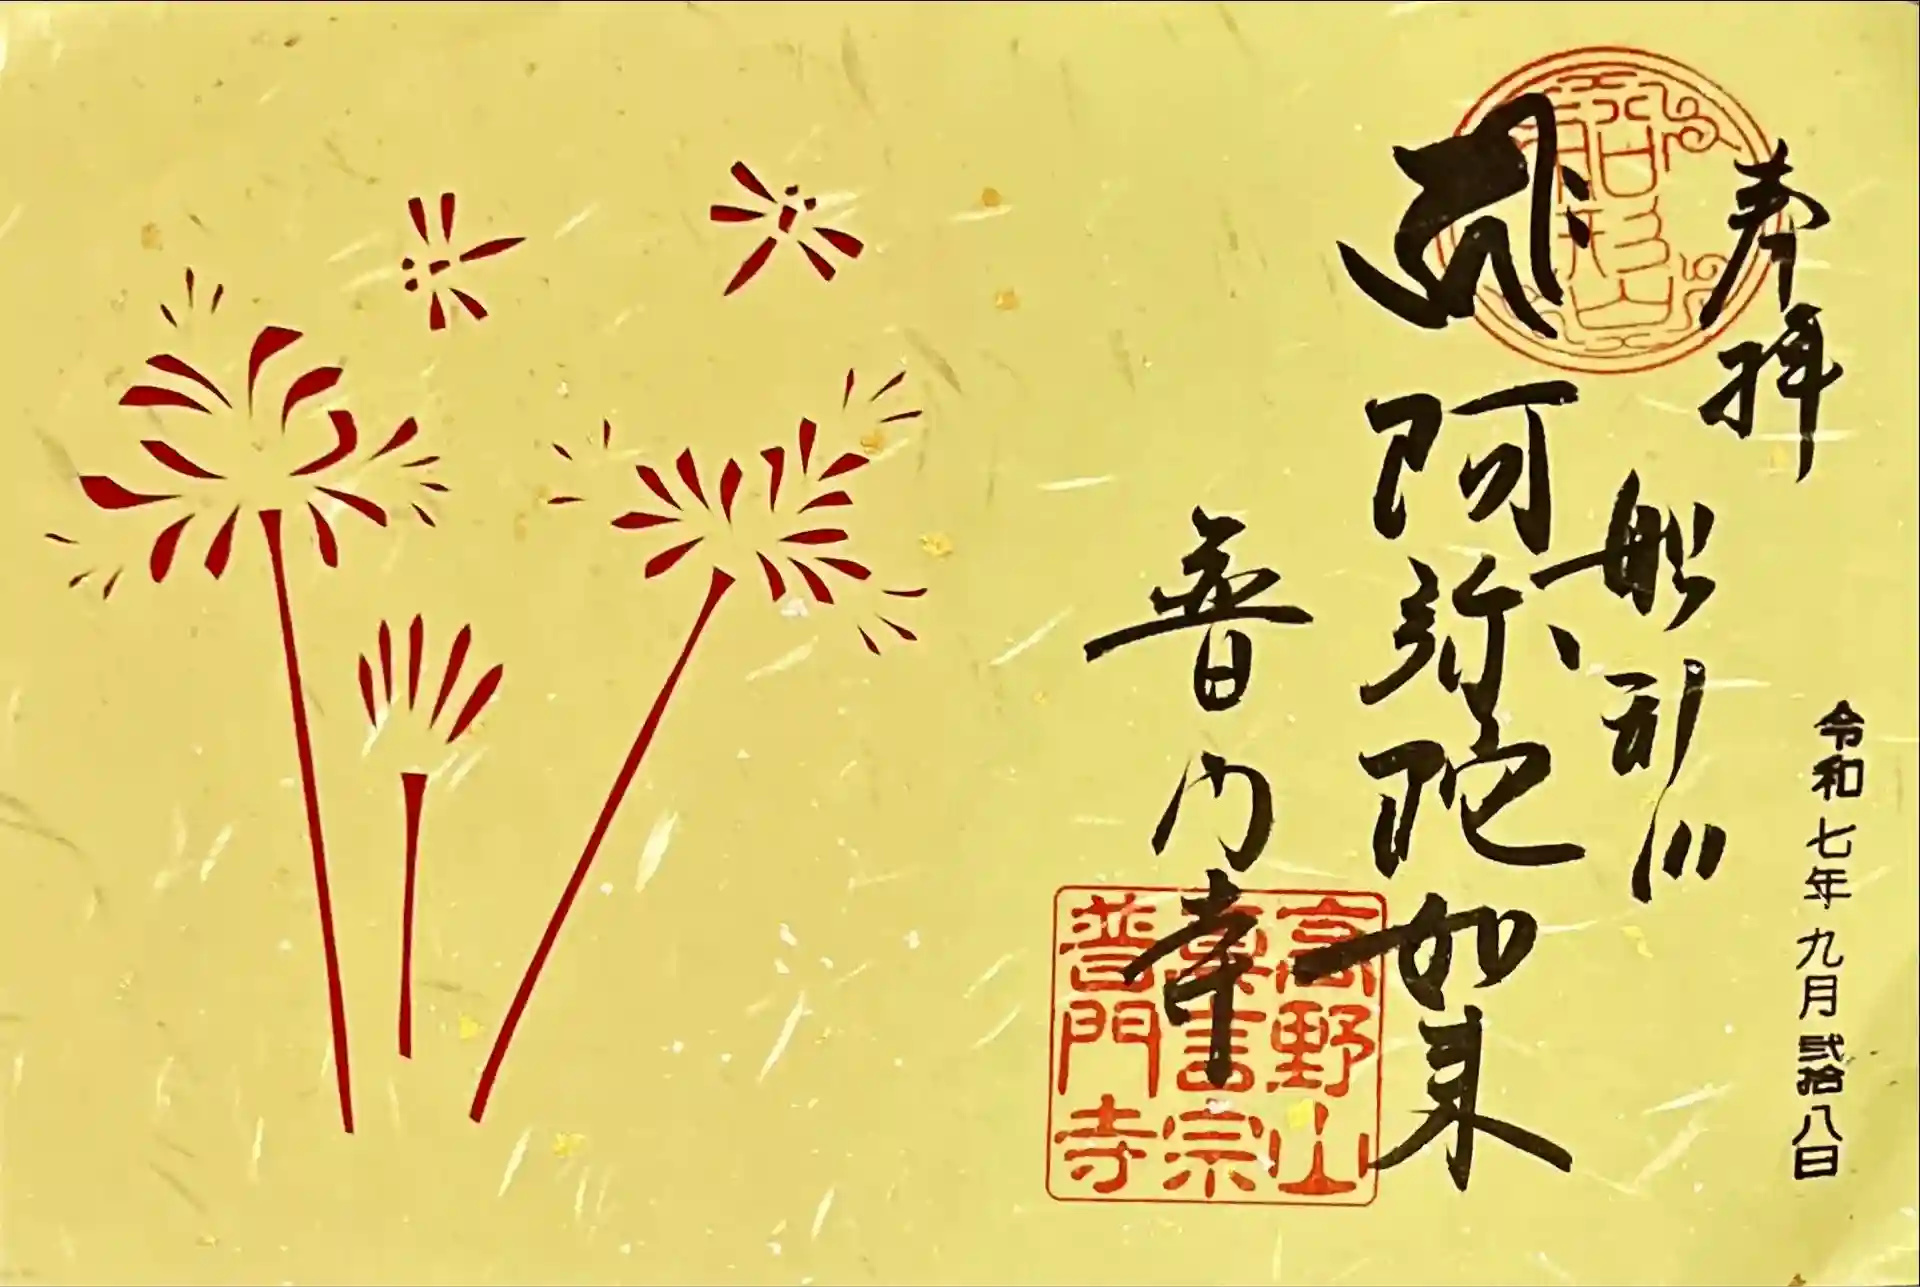 奉拝
令和七年九月弐拾八日
船形山
船形山
阿弥陀如来
普門寺
高野山
真言宗
普門寺